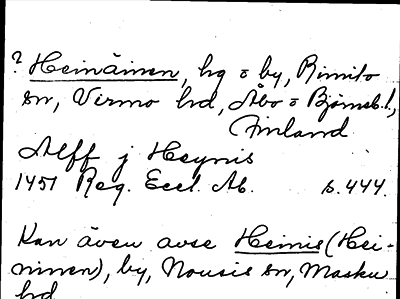 ? Heinäinen, hg o by, Rimito
sn, Virmo hd, Åbo o Björneb. l.,
Finland
Alff j Heynis
1451 Reg. Eccl. Ab. s. 444.
Kan även avse Heinis (Hei-
ninen), by, Nousis sn, Masku
hd